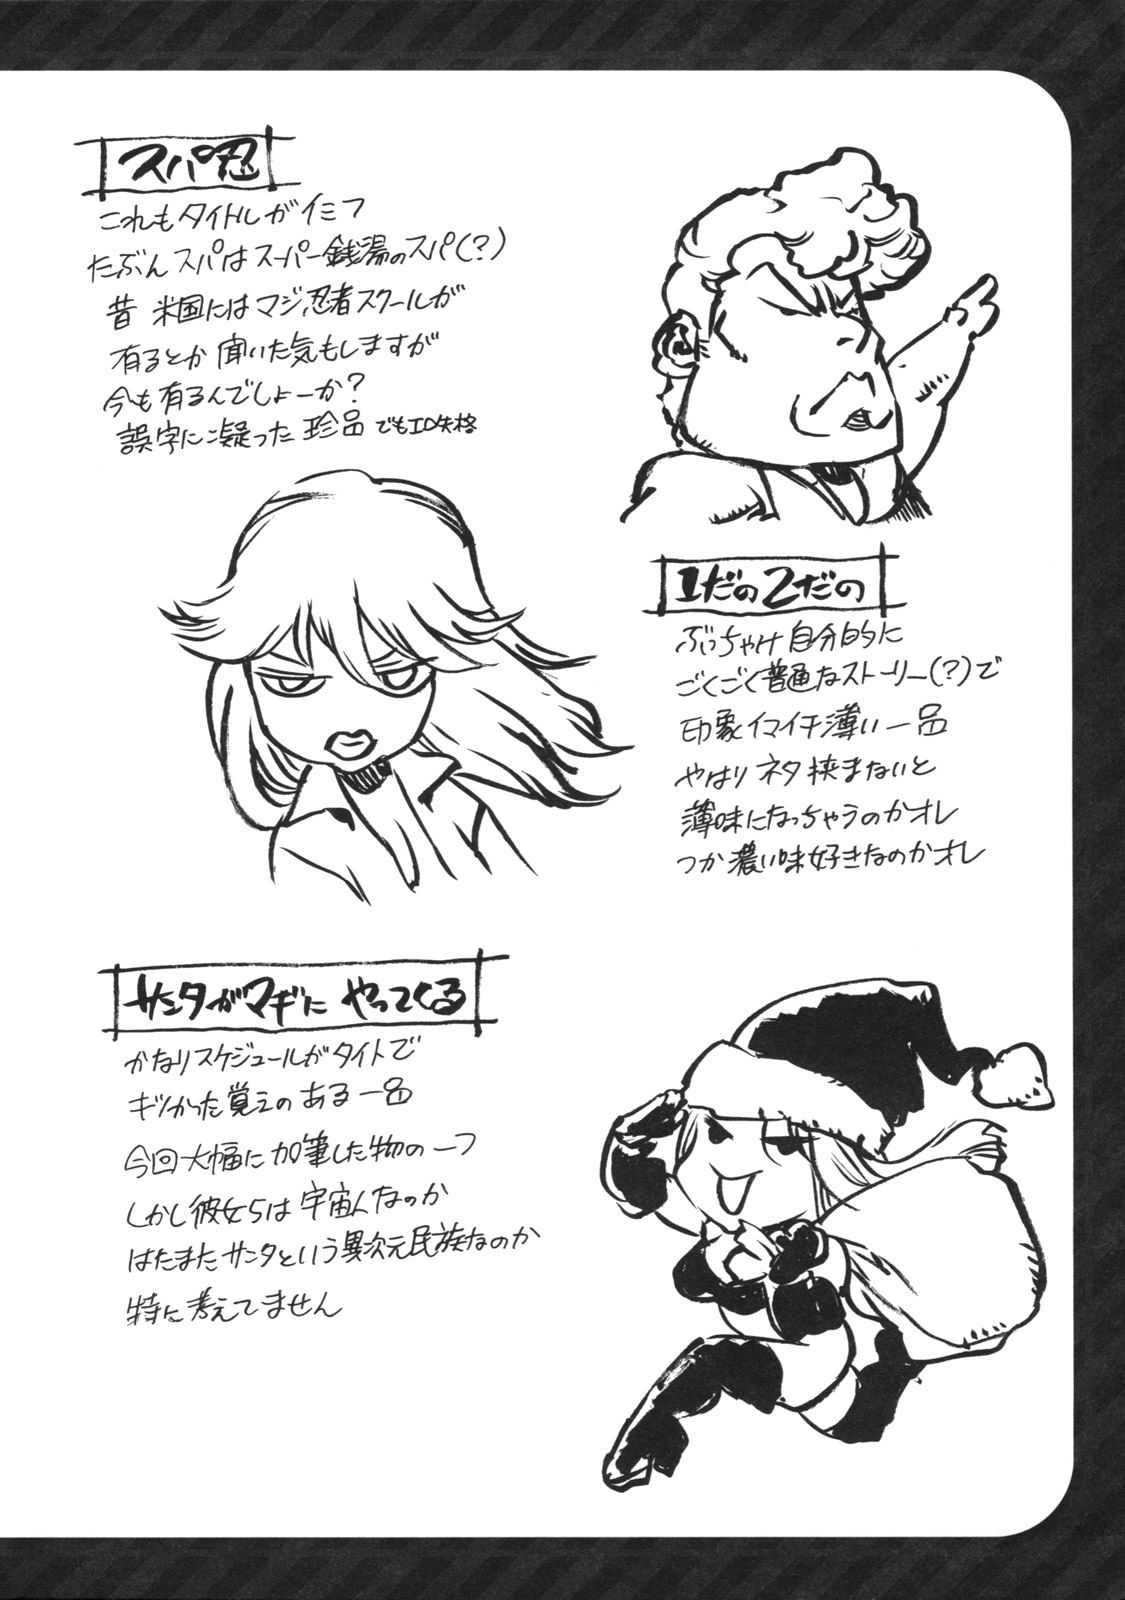 スパ忍
これもタイトルがイミフ
たぶんスパはスーパー銭湯のスパ(?)
昔 米国にはマジ忍者スクールが
有るとか聞いた気もしますが
今も有るんでしょーか?
誤字に疑った珍品でもエロ失格
1だの2だの
ぶっちゃけ自分的に
ごくごく普通なストーリー(?)で
印象イマイチ薄い一品
やはりネタ挟まないと
薄味になっちゃうのかオレ
つか濃い味好きなのかオレ
サンタがマギにやってくる
かなりスケジュールがタイトで
キツかった覚えのある一品
今回大幅に加筆した物の一つ
しかし彼女らは宇宙人なのか
はたまたサンタという異次元民族なのか
特に考えてません